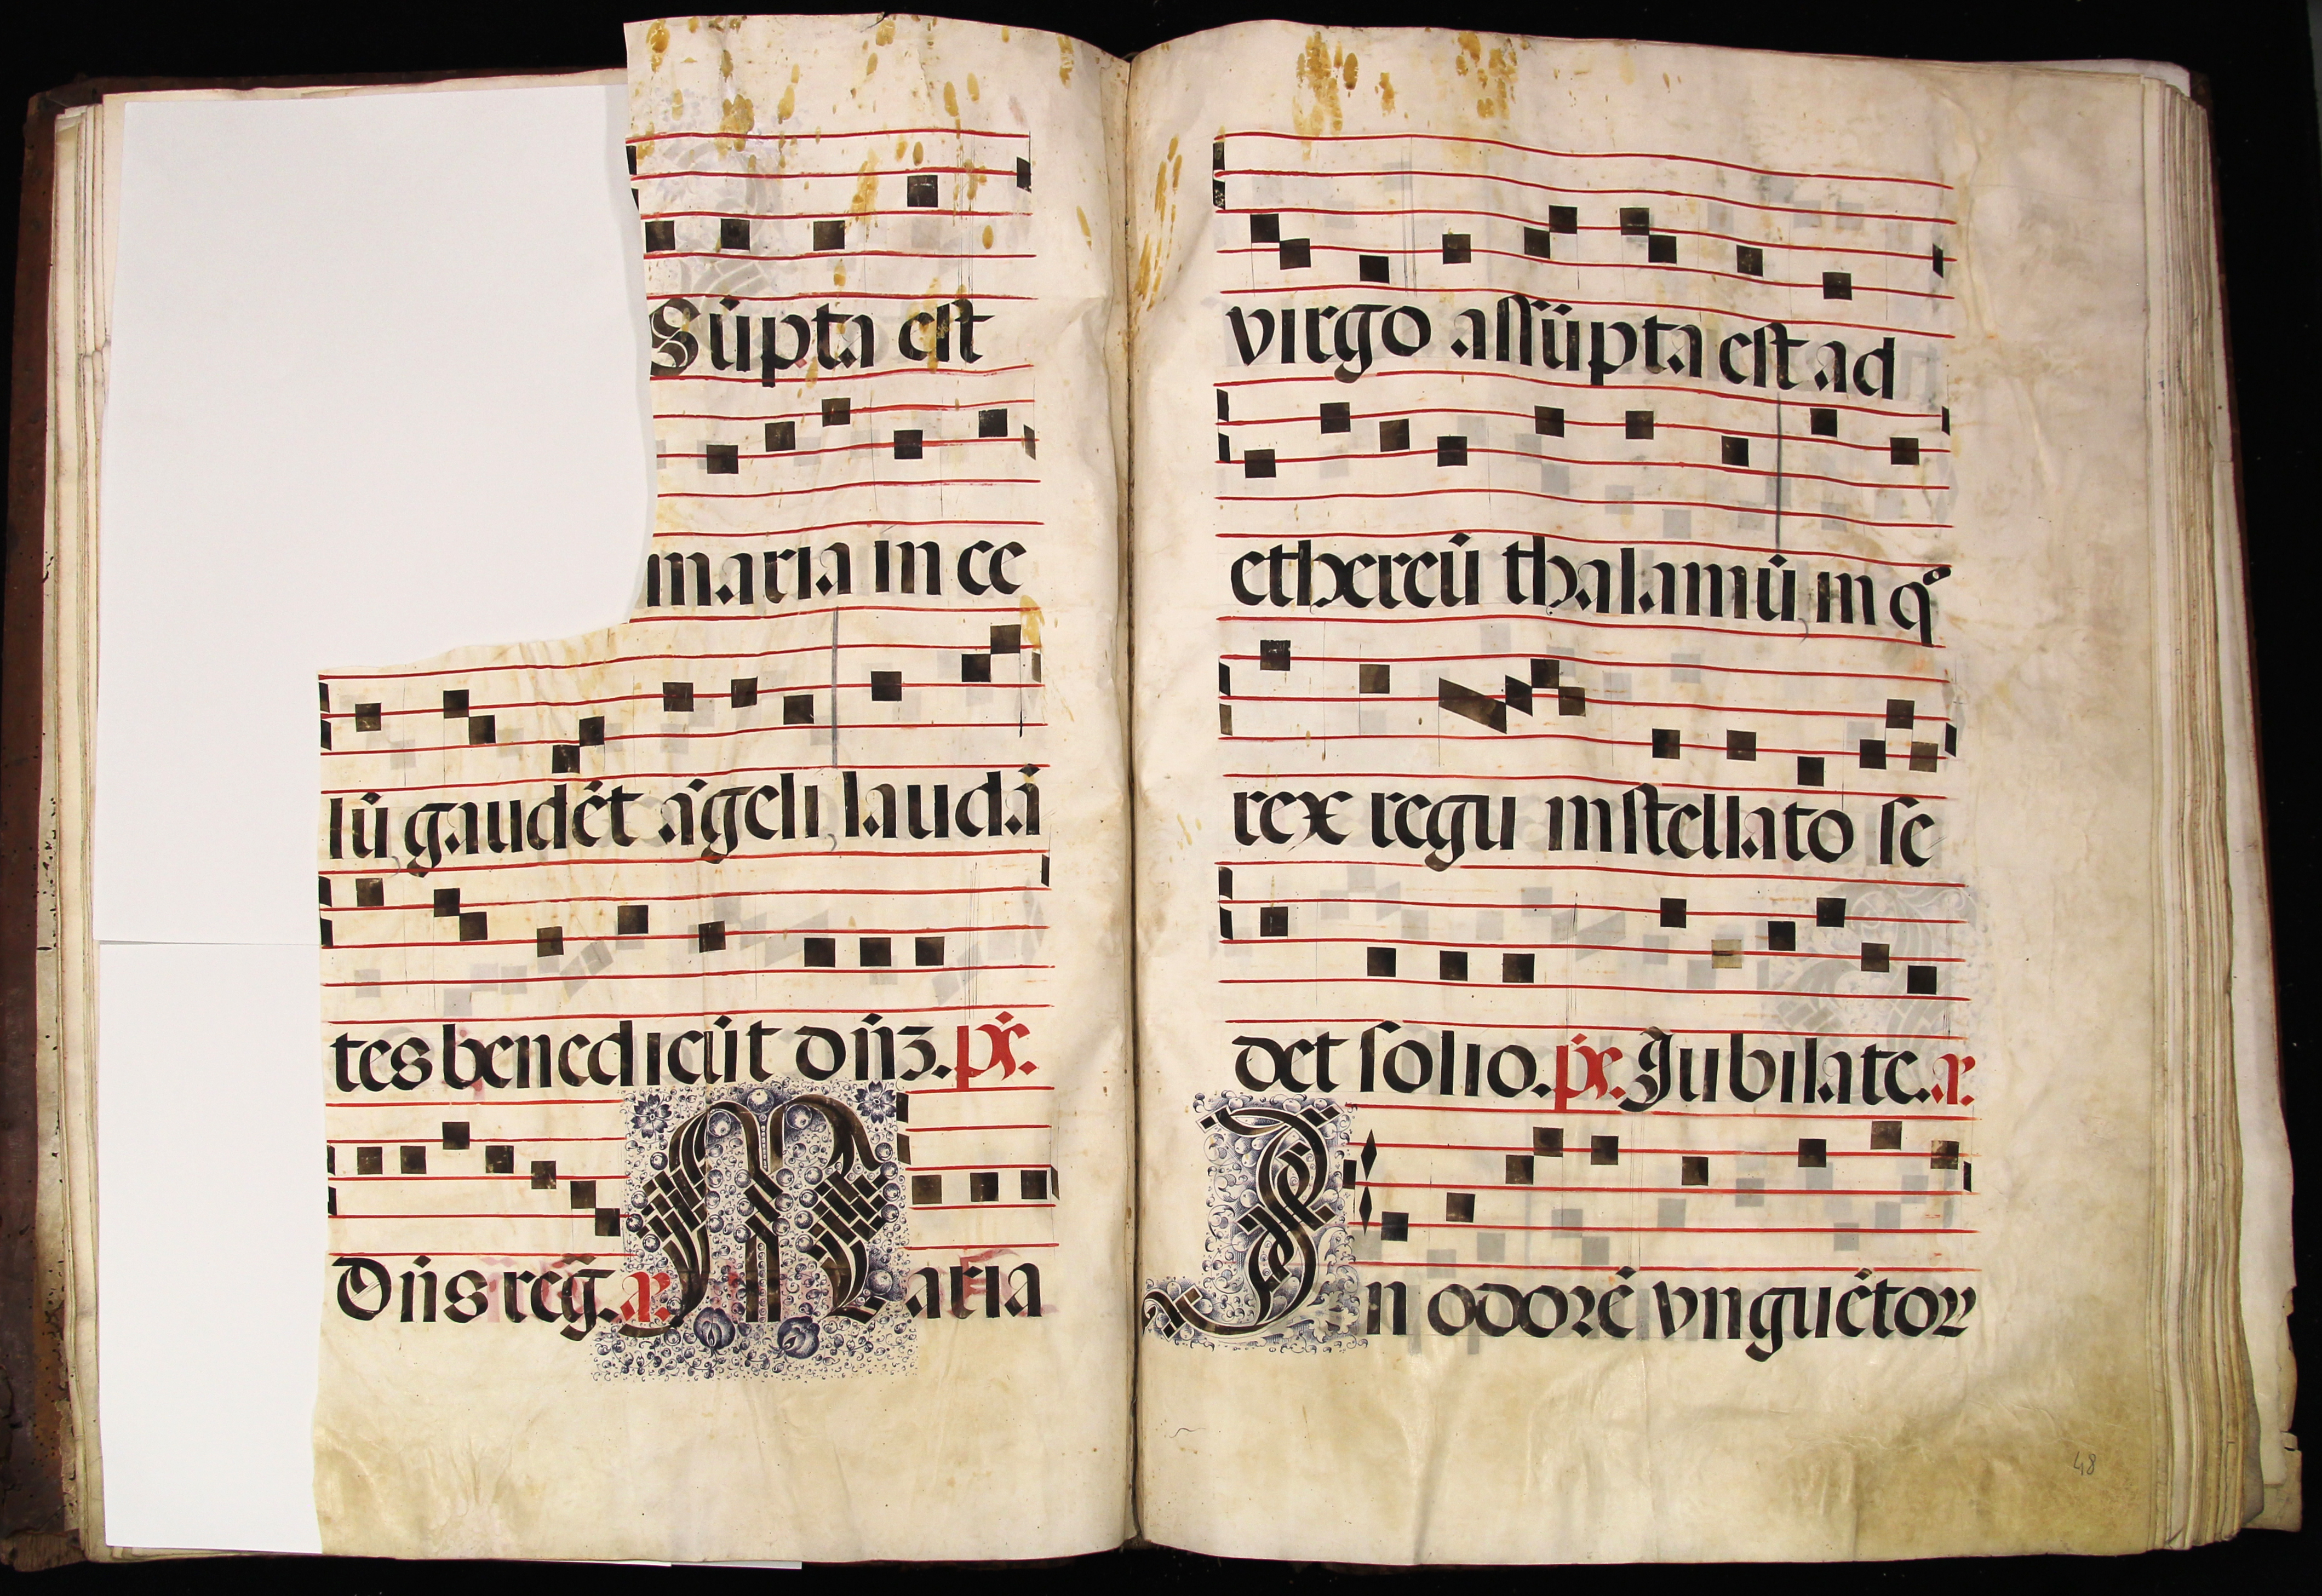 Sũpta est
maria in ce
lũ gaudẽt ãgeli, laudã
tes benedicũt dñ̃ʒ. pš.
Dñs reg̃. a. Maria
virgo assũpta est ad
ethereũ thalamũ, in qº
rex regu in stellato se
det solio. pš. Jubilate. a.
In odorẽ vnguẽtoꝝ
48